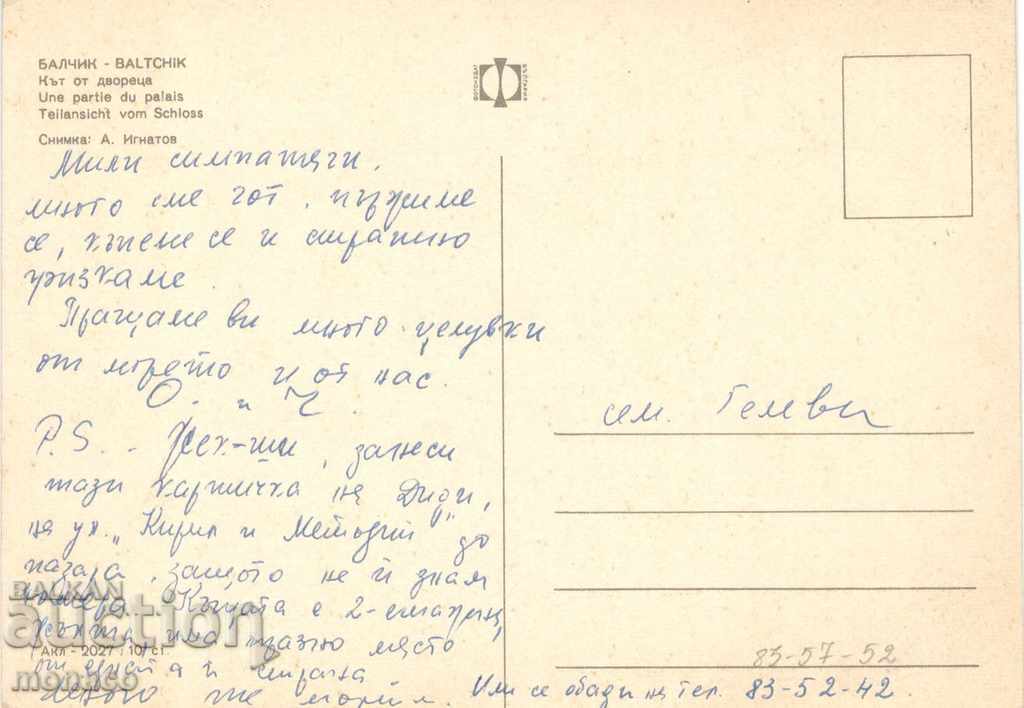 БАЛЧИК - BALTCHIK
Кът от двореца
Une partie du palais
Teilansicht vom Schloss
Снимка: А. Игнатов
Мили симпатяги,
много сме гот. пържиме
се, къпеме се и страшно
гризкаме.
Пращаме ви много целувки
от морето и от нас.
О. и Ч.
P.S. занеси
тази картичка на Диди,
на ул. „Кирил и Методий" до
пазара, защото не ѝ знам
номера. Къщата е 2-етажна,
жълта, има празно място
от едната ѝ страна
много те моля. Или се обади на тел. 83-52-42.
сем. Гелеви
83-57-52
Акл - 2027 107 ст.
BALKAN
auction
monaco